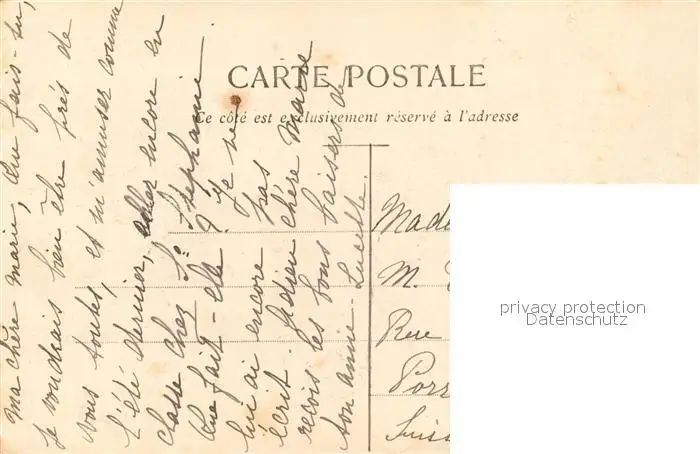 CARTE POSTALE
Ce côté est exclusivement réservé à l'adresse
ma chère marie, que fais-tu,
je voudrais bien être près de
vous toutes, et m'amuser comme
l'été dernier, encore en
classe chez Stéphanie.
que fait-elle? Je ne
lui ai encore pas
écrit. chère Marie
reçois les bons baisers de
ton amie. Lucette.
Made
M.
Rue
Porr
Suiss
privacy protection
Datenschutz